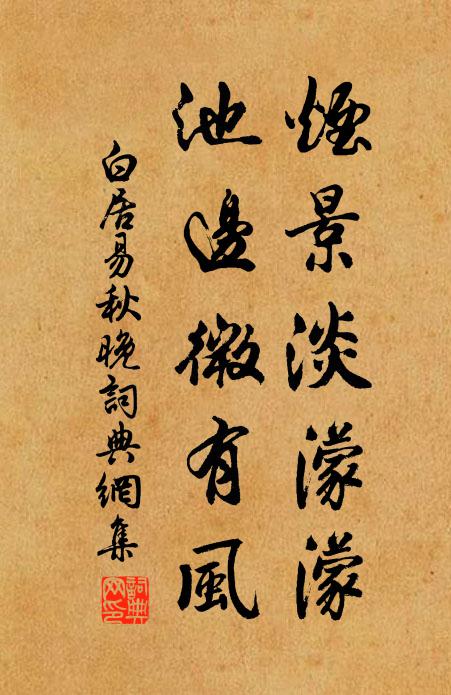 煙景淡濛濛
池邊微有風
白居易秋晚詞典網集
詞典
網印